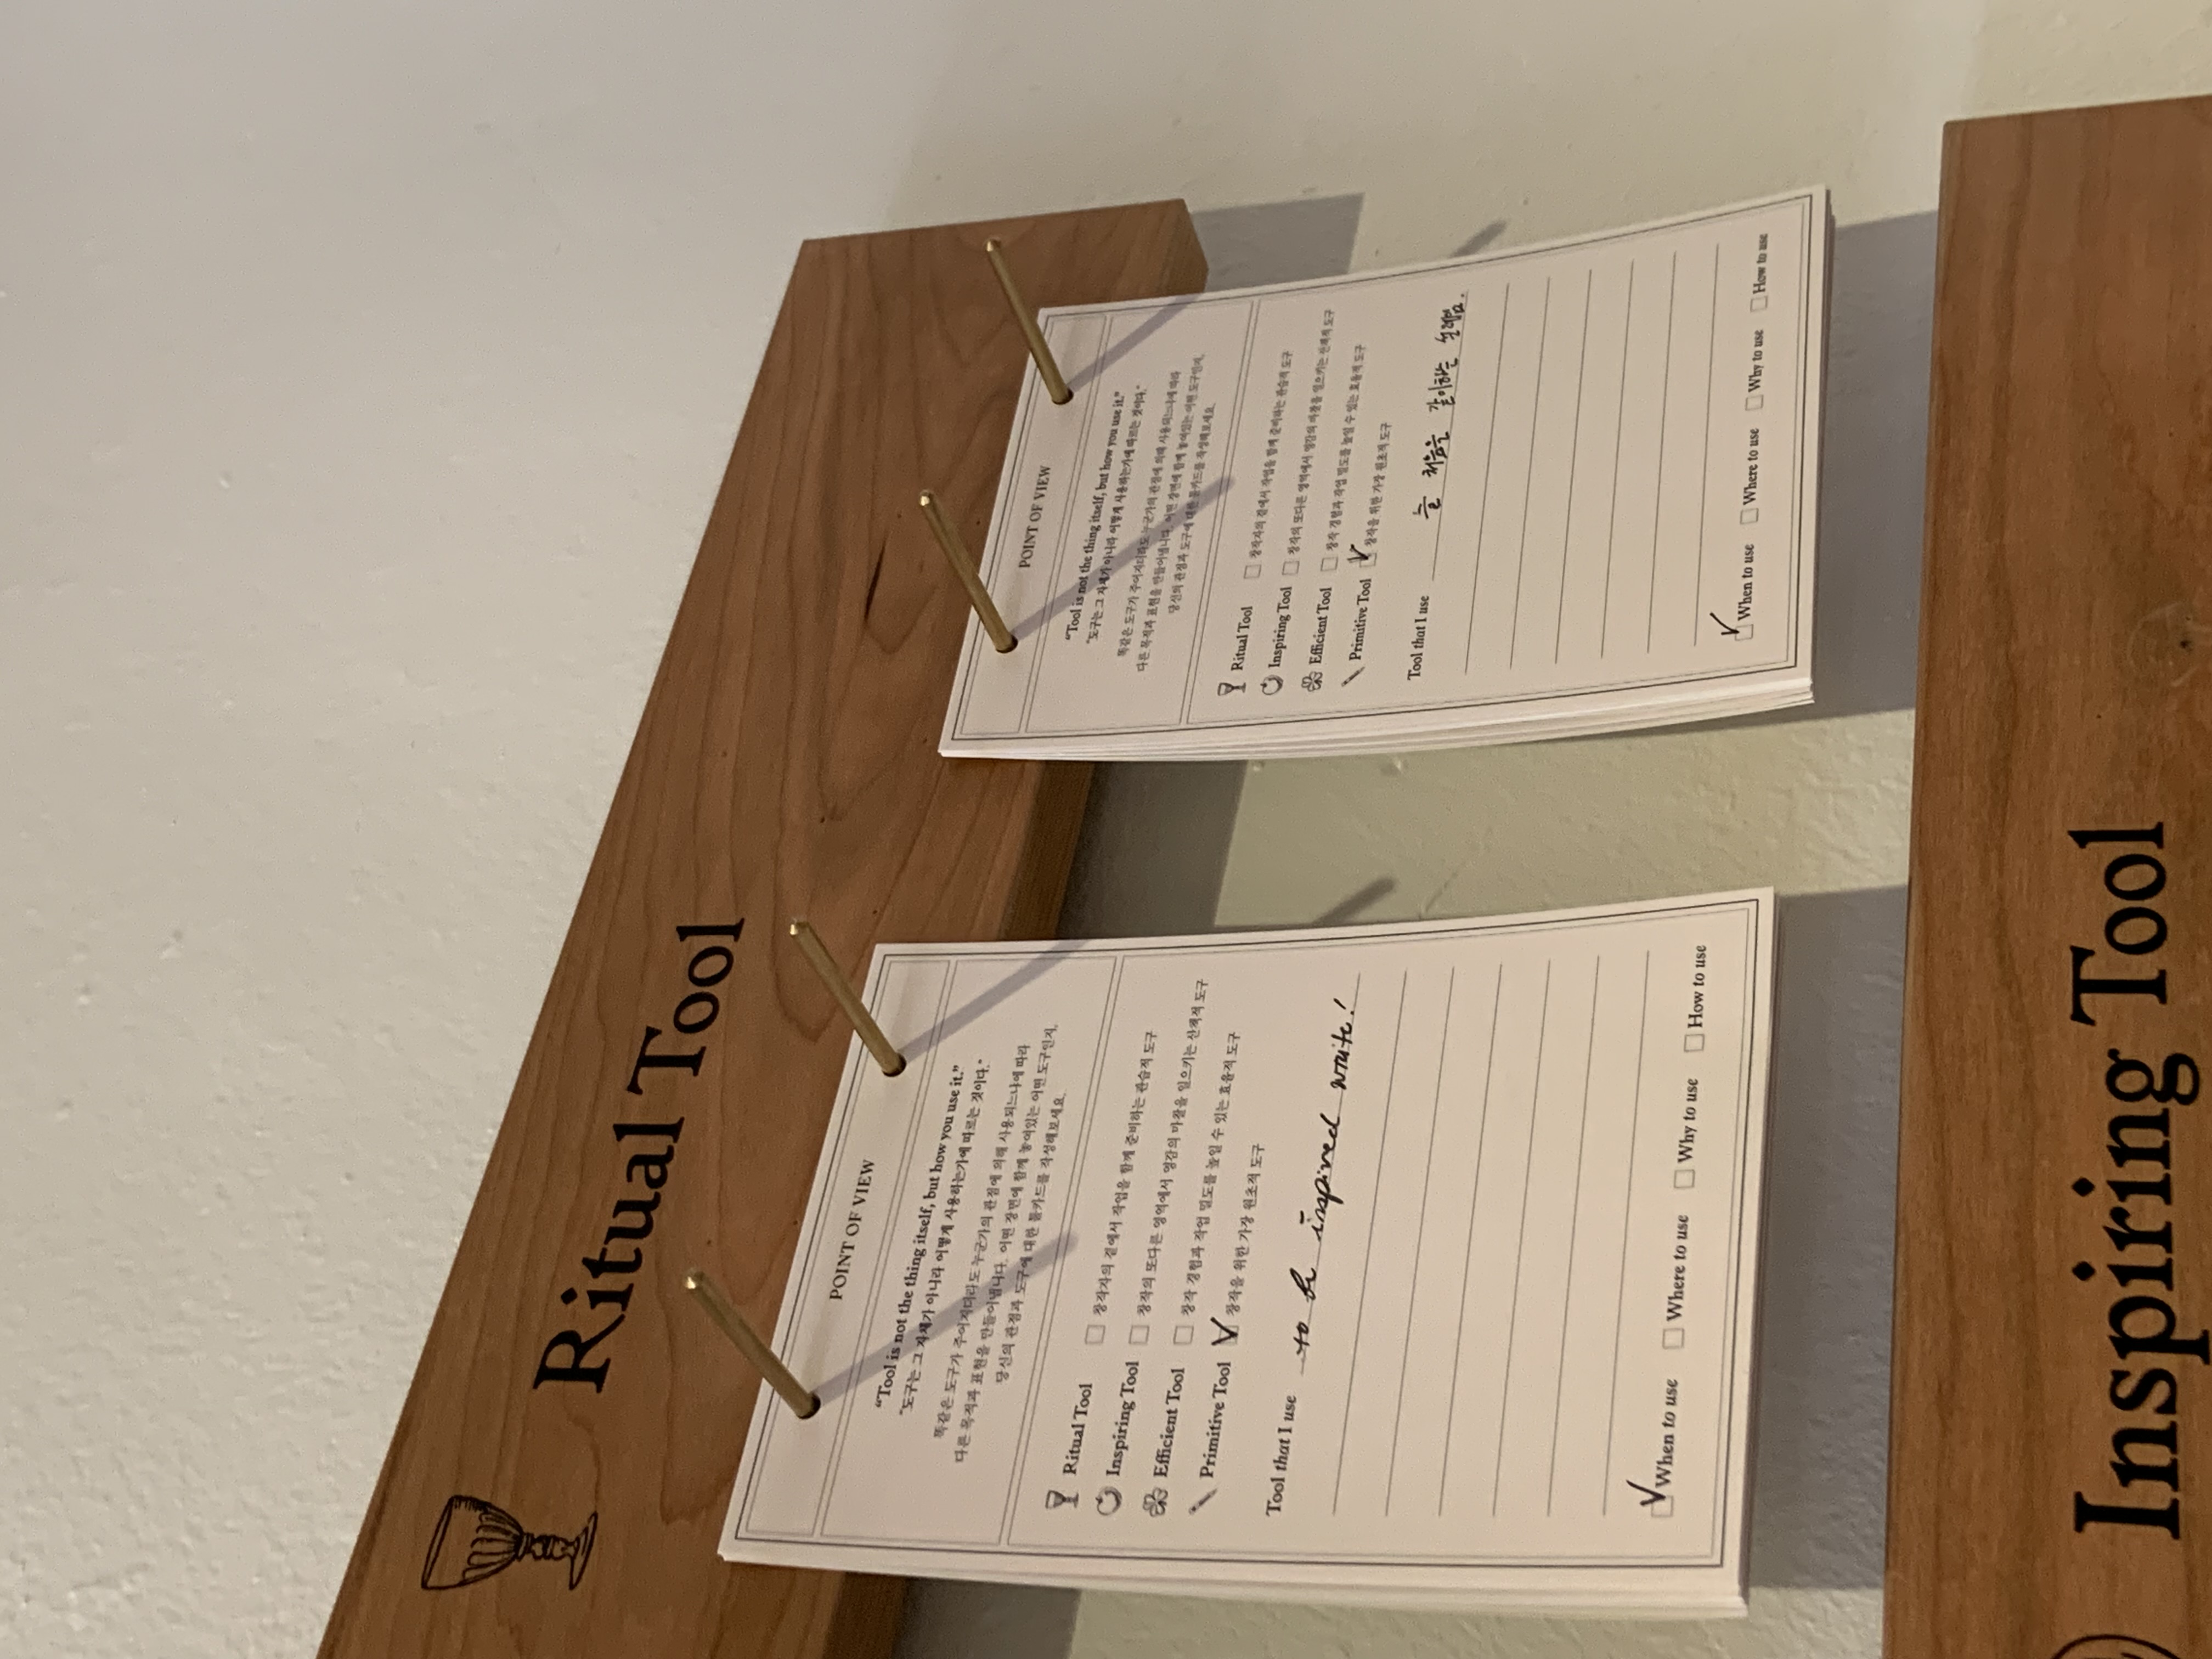 Ritual Tool
POINT OF VIEW
“Tool is not the thing itself, but how you use it.”
“도구는 그 자체가 아니라 어떻게 사용하는가에 따르는 것이다.”
똑같은 도구가 주어지더라도 누군가의 관점에 의해 사용되느냐에 따라
다른 목적과 표현을 만들어냅니다. 어떤 장면에 함께 놓여있는 어떤 도구인지,
당신의 관점과 도구에 대한 툴카드를 작성해보세요.
Ritual Tool 창작자의 곁에서 작업을 함께 준비하는 관습적 도구
Inspiring Tool 창작의 또다른 영역에서 영감의 마찰을 일으키는 산책적 도구
Efficient Tool 창작 경험과 작업 밀도를 높일 수 있는 효율적 도구
Primitive Tool 창작을 위한 가장 원초적 도구
Tool that I use to be inspired write!
When to use Where to use Why to use How to use
POINT OF VIEW
“Tool is not the thing itself, but how you use it.”
“도구는 그 자체가 아니라 어떻게 사용하는가에 따르는 것이다.”
똑같은 도구가 주어지더라도 누군가의 관점에 의해 사용되느냐에 따라
다른 목적과 표현을 만들어냅니다. 어떤 장면에 함께 놓여있는 어떤 도구인지,
당신의 관점과 도구에 대한 툴카드를 작성해보세요.
Ritual Tool 창작자의 곁에서 작업을 함께 준비하는 관습적 도구
Inspiring Tool 창작의 또다른 영역에서 영감의 마찰을 일으키는 산책적 도구
Efficient Tool 창작 경험과 작업 밀도를 높일 수 있는 효율적 도구
Primitive Tool 창작을 위한 가장 원초적 도구
Tool that I use 늘 처음을 같이하는 설레임.
When to use Where to use Why to use How to use
Inspiring Tool